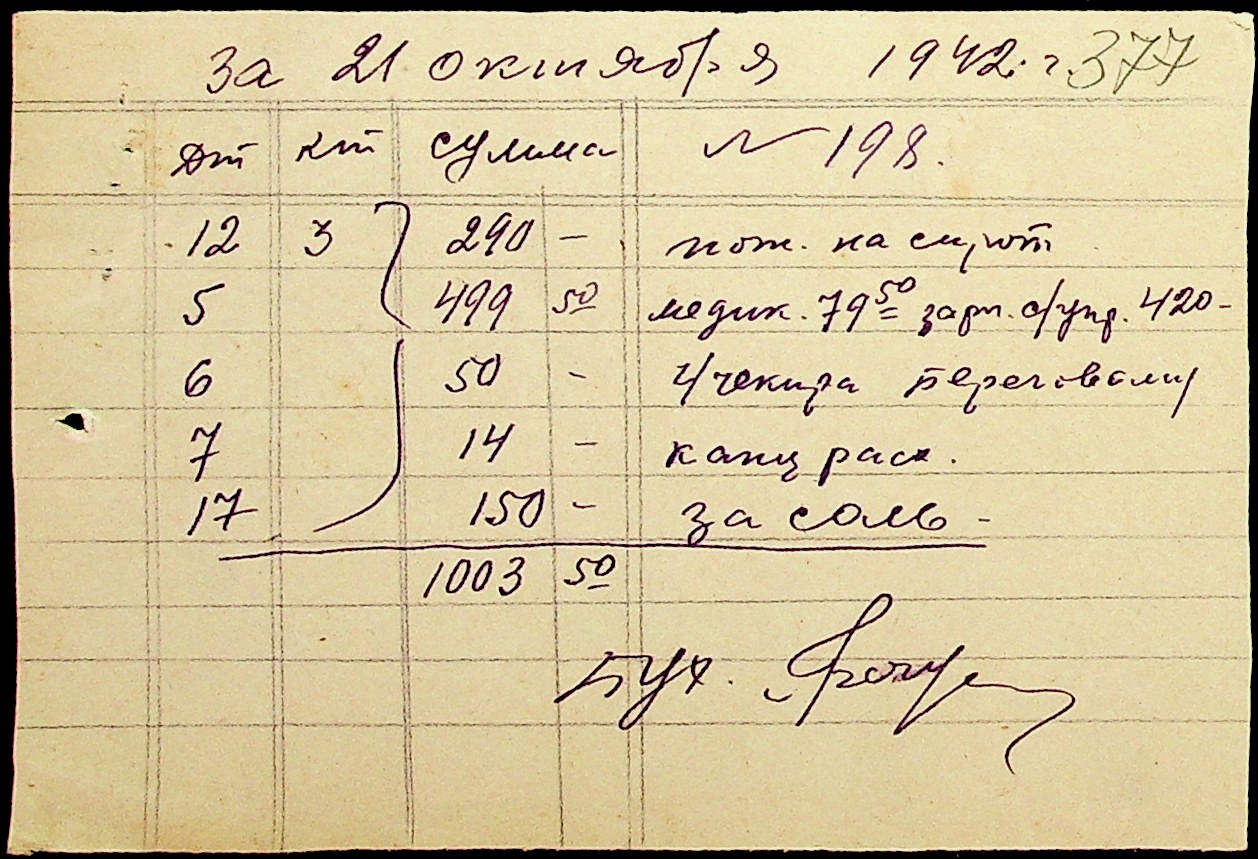 за 21 октября 1942. г. 377
Дт Кт сумма № 198.
12 3 290 – на
5 499 50 медик. 79 50 зарп. с/упр. 420 –
6 50 –
7 14 – канц рас.
17 150 – за соль –
1003 50
Бух.